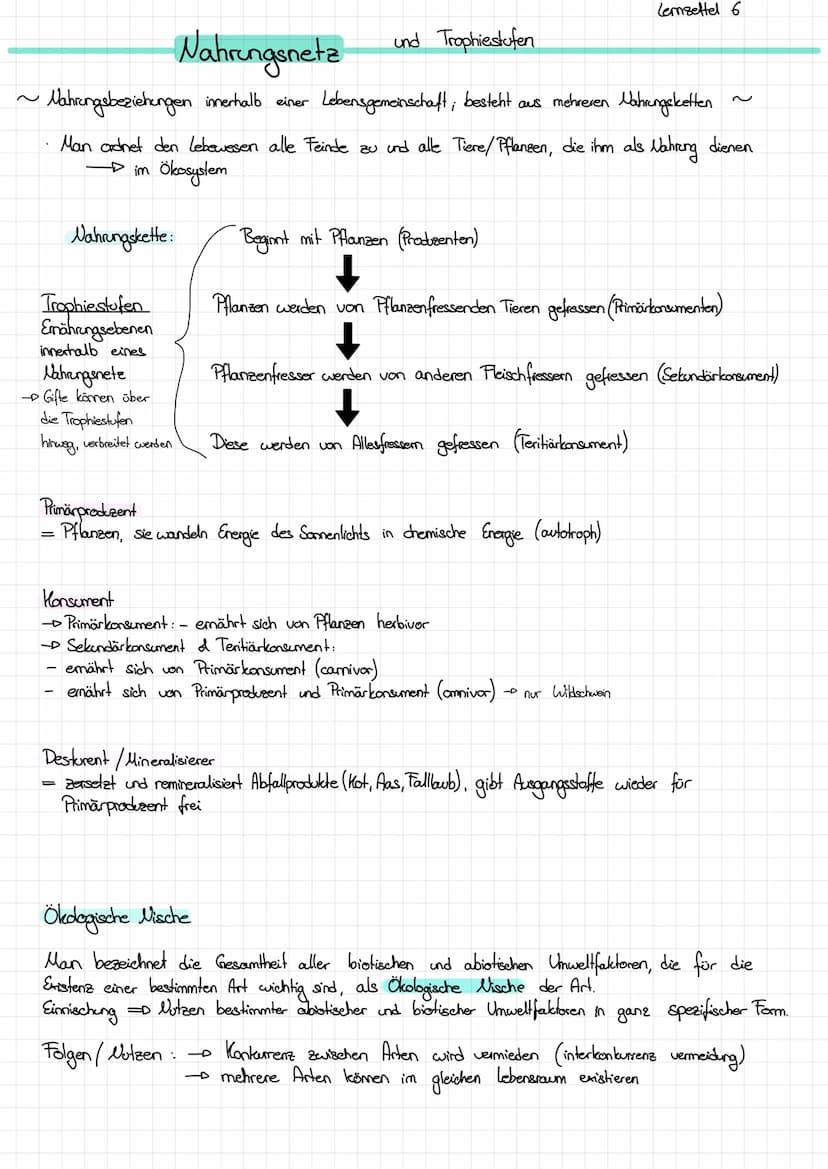 Lernzettel 6
Nahrungsnetz und Trophiestufen
~ Nahrungsbeziehungen innerhalb einer Lebensgemeinschaft; besteht aus mehreren Nahrungsketten ~
· Man ordnet den Lebewesen alle Feinde zu und alle Tiere/Pflanzen, die ihm als Nahrung dienen
→ im Ökosystem
Nahrungskette:
Beginnt mit Pflanzen (Produzenten)
Pflanzen werden von Pflanzenfressenden Tieren gefressen (Primärkonsumenten)
Pflanzenfresser werden von anderen Fleischfressern gefressen (Sekundärkonsument)
Diese werden von Allesfressern gefressen (Teritiärkonsument)
Trophiestufen
Ernährungsebenen
innerhalb eines
Nahrungsnetz
→ Gifte können über
die Trophiestufen
hinweg, verbreitet werden
Primärproduzent
= Pflanzen, sie wandeln Energie des Sonnenlichts in chemische Energie (autotroph)
Konsument
→ Primärkonsument: - ernährt sich von Pflanzen herbivor
→ Sekundärkonsument & Teritiärkonsument:
- ernährt sich von Primärkonsument (carnivor)
- ernährt sich von Primärproduzent und Primärkonsument (omnivor) → nur Wildschwein
Desturent / Mineralisierer
= zersetzt und remineralisiert Abfallprodukte (Kot, Aas, Falllaub), gibt Ausgangsstoffe wieder für
Primärproduzent frei
Ökologische Nische
Man bezeichnet die Gesamtheit aller biotischen und abiotischen Umweltfaktoren, die für die
Existenz einer bestimmten Art wichtig sind, als Ökologische Nische der Art.
Einnischung ⇒ Nutzen bestimmter abiotischer und biotischer Umweltfaktoren in ganz spezifischer Form.
Folgen / Nutzen : → Konkurrenz zwischen Arten wird vermieden (interkonkurrenz vermeidung)
→ mehrere Arten können im gleichen Lebensraum existieren